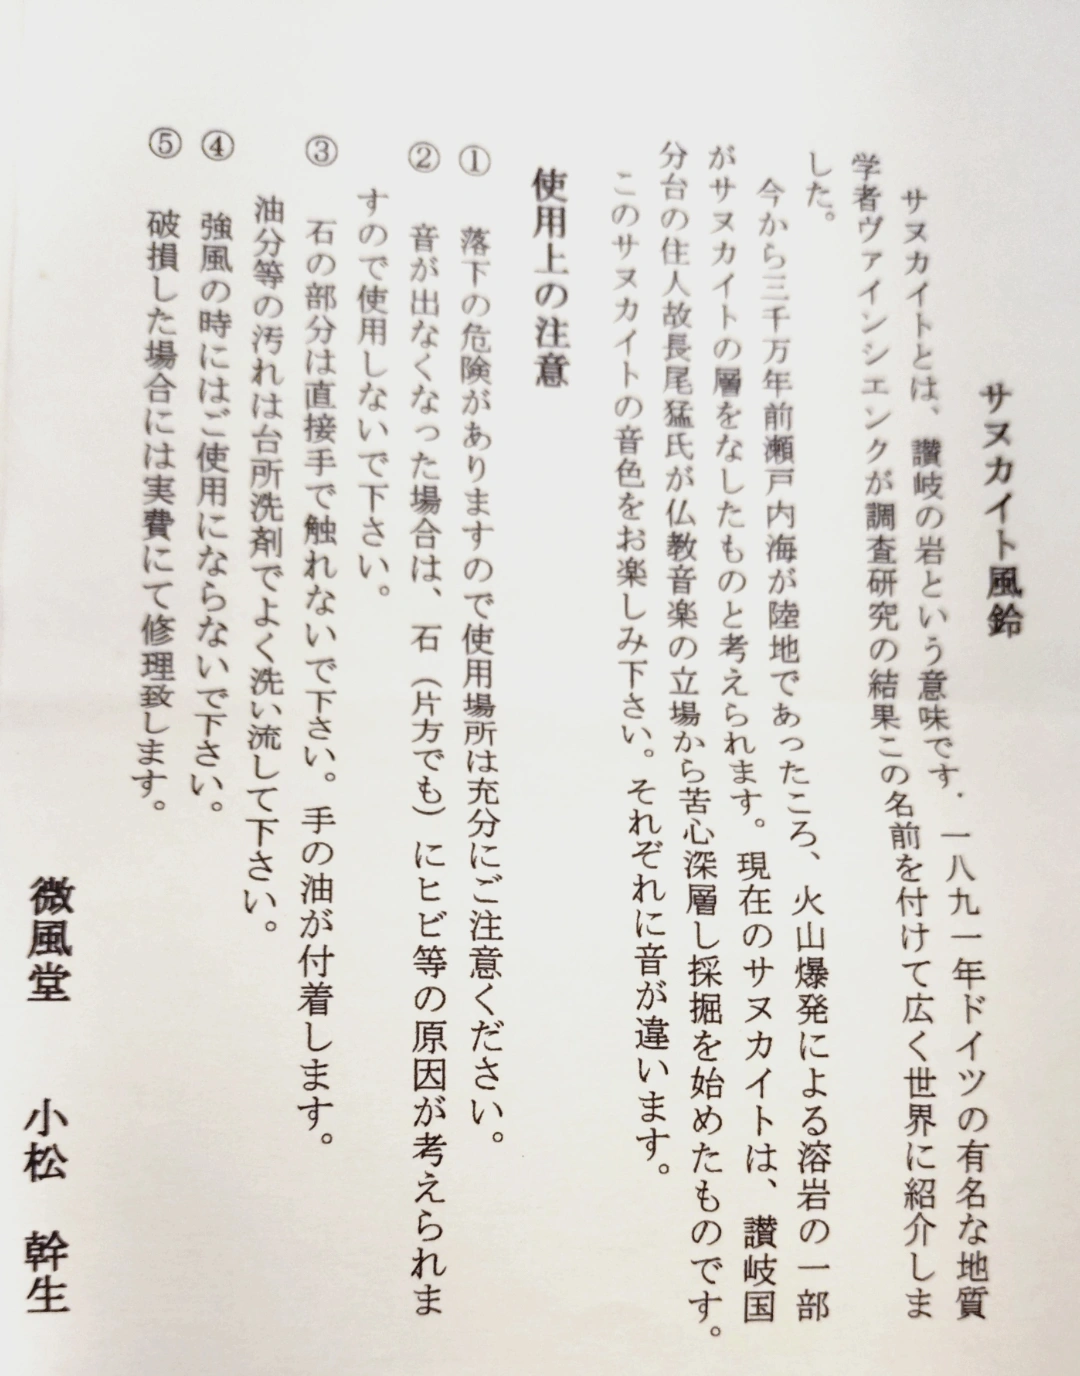 サヌカイト風鈴
サヌカイトとは、讃岐の岩という意味です．一八九一年ドイツの有名な地質
学者ヴァインシェンクが調査研究の結果この名前を付けて広く世界に紹介しま
した。
今から三千万年前瀬戸内海が陸地であったころ、火山爆発による溶岩の一部
がサヌカイトの層をなしたものと考えられます。現在のサヌカイトは、讃岐国
分台の住人故長尾猛氏が仏教音楽の立場から苦心深層し採掘を始めたものです。
このサヌカイトの音色をお楽しみ下さい。それぞれに音が違います。
使用上の注意
① 落下の危険がありますので使用場所は充分にご注意ください。
② 音が出なくなった場合は、石（片方でも）にヒビ等の原因が考えられま
すので使用しないで下さい。
③ 石の部分は直接手で触れないで下さい。手の油が付着します。
油分等の汚れは台所洗剤でよく洗い流して下さい。
④ 強風の時にはご使用にならないで下さい。
⑤ 破損した場合には実費にて修理致します。
微風堂 小松 幹生